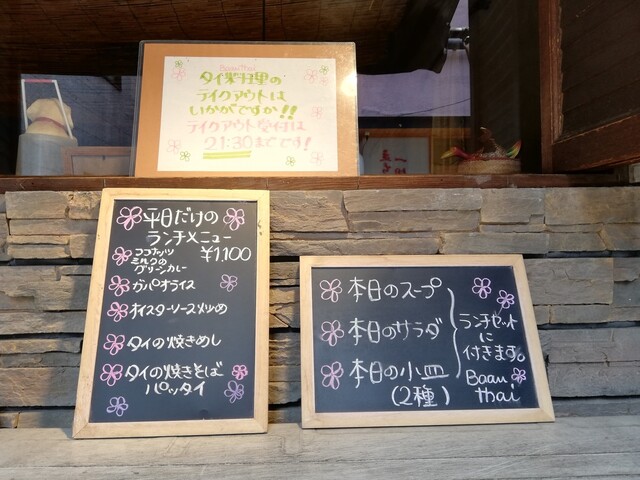 Baan Thai
タイ料理の
テイクアウトは
いかがですか!!
テイクアウト受付は
21:30までです!
平日だけの
ランチメニュー
ココナッツ
ミルクの
グリーンカレー
¥1,100
ガパオライス
オイスターソース炒め
タイの焼きめし
タイの焼きそば
パッタイ
本日のスープ
本日のサラダ
本日の小皿
(2種)
ランチセット
に
付きます。
Baan
thai